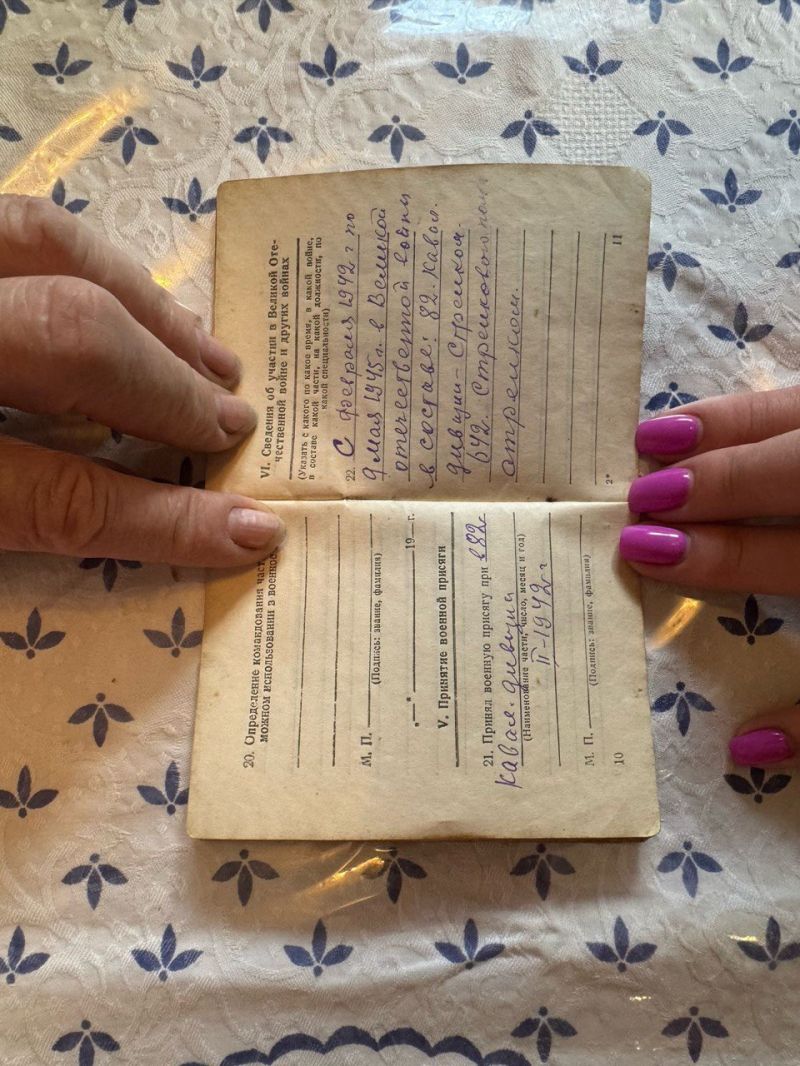 20. Определение командования част
можном использовании в военное
М. П.
(Подпись: звание, фамилия)
"___" 19___ г.
V. Принятие военной присяги
21. Принял военную присягу при в 82
кавал. дивизии
(Наименование части, число, месяц и год)
II-1942 г
М. П.
(Подпись: звание, фамилия)
10
VI. Сведения об участии в Великой Оте-
чественной войне и других войнах
(Указать с какого по какое время, в какой войне,
в составе какой части, на какой должности, по
какой специальности)
22. С февраля 1942 г по
9 мая 1945 г. в Великой
отечественной войны
в составе: 82. Кавал.
дивизии - стрелком
642. Стрелкового полк
стрелком.
2*
11